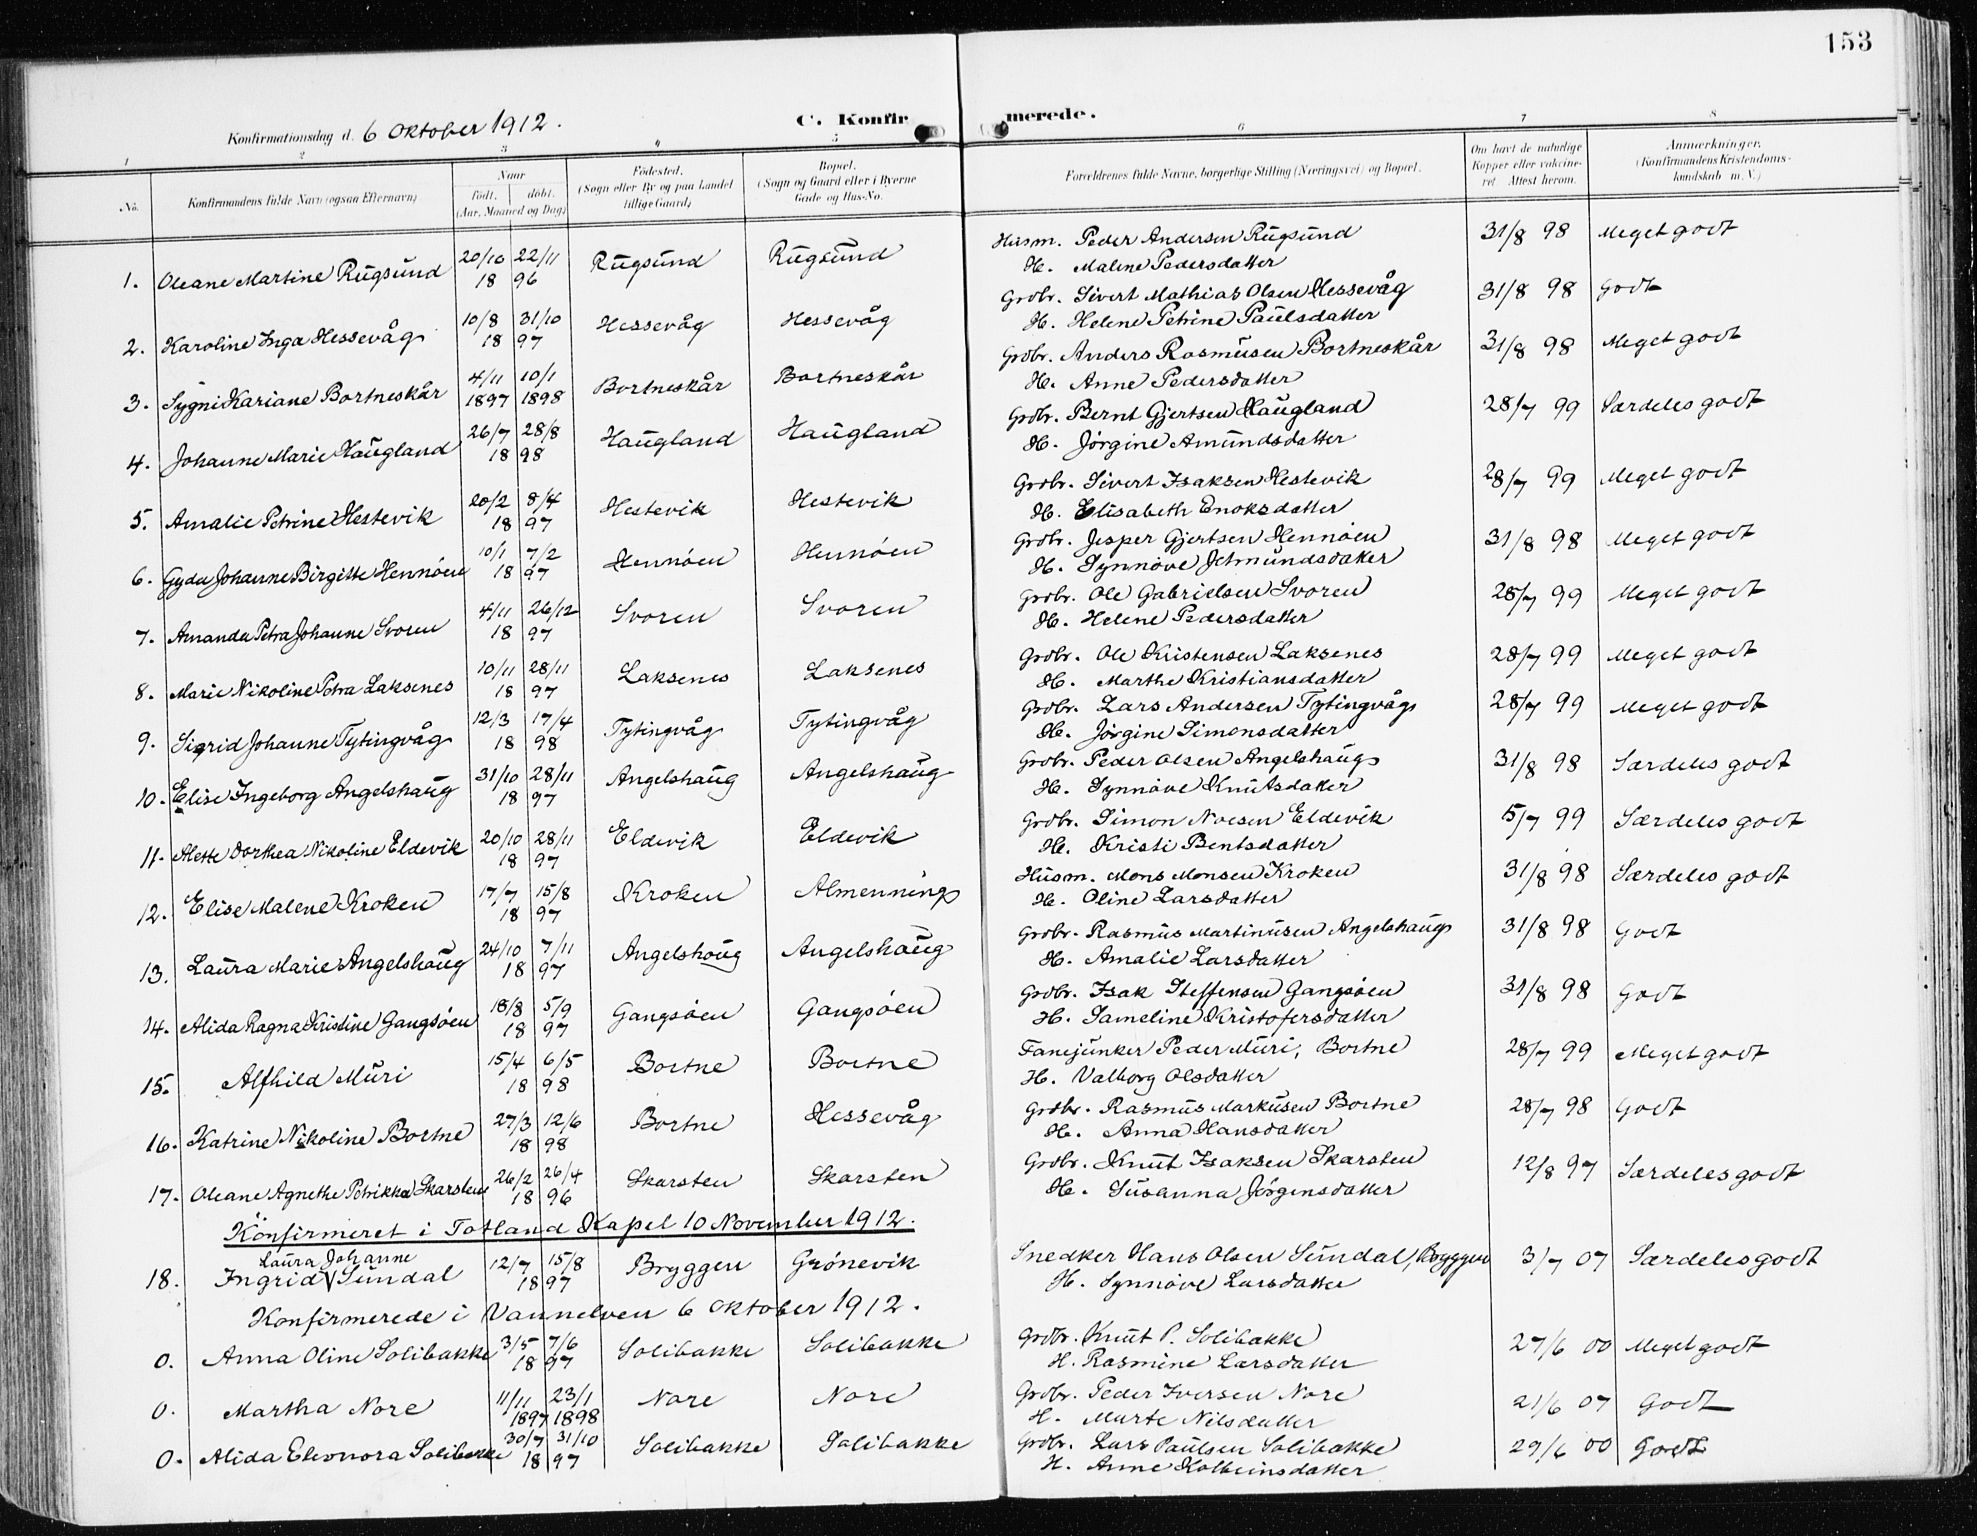 153
Konfirmationsdag d. 6 Oktober 1912.
C. Konfirmerede.
1 2 3 4 5 6 7 8
No. | Konfirmandens fulde Navn (ogsaa Efternavn) | Naar födt. döbt. (Aar, Maaned og Dag) | Födested. (Sogn eller By og paa Landet tillige Gaard) | Bopæl. (Sogn og Gaard eller i Byerne Gade og Hus-No. | Forældrenes fulde Navne, borgerlige Stilling (Næringsvei) og Bopæl. | Om havt de naturlige Kopper eller vaccineret. Attest herom. | Anmærkninger. (Konfirmandens Kristendomskundskab m. V.)
1. Oleane Martine Rugsund 20/10 22/11 Rugsund Rugsund Husm. Peder Andersen Rugsund 31/8 98 Meget godt
18 96 H. Malene Pedersdatter
2. Karoline Inga Hessevåg 10/8 31/10 Hessevåg Hessevåg Grdbr. Sivert Mathias Olsen Hessevåg 31/8 98 Godt
18 97 H. Helene Petrine Paulsdatter
3. Sygni Kariane Bortneskår 4/11 10/1 Bortneskår Bortneskår Grdbr. Anders Rasmusen Bortneskår 31/8 98 Meget godt
1897 1898 H. Anne Pedersdatter
4. Johanne Marie Haugland 26/7 28/8 Haugland Haugland Grdbr. Bernt Gjertsen Haugland 28/7 99 Særdeles godt
18 98 H. Jørgine Amundsdatter
5. Amalie Petrine Hestevik 20/2 8/4 Hestevik Hestevik Grdbr. Sivert Isaksen Hestevik 28/7 99 Meget godt
18 97 H. Elisabeth Enoksdatter
6. Gyda Johanne Birgitte Hennøen 10/1 7/2 Hennøen Hennøen Grdbr. Jesper Gjertsen Hennøen 31/8 98 Meget godt
18 97 H. Synnøve Jetmundsdatter
7. Amanda Petra Johanne Svoren 4/11 26/12 Svoren Svoren Grdbr. Ole Gabrielsen Svoren 28/7 99 Meget godt
18 97 H. Helene Pedersdatter
8. Marie Nikoline Petra Laksenes 10/11 28/11 Laksenes Laksenes Grdbr. Ole Kristensen Laksenes 28/7 99 Meget godt
18 97 H. Marthe Kristiansdatter
9. Sigrid Johanne Tytingvåg 12/3 17/4 Tytingvåg Tytingvåg Grdbr. Lars Andersen Tytingvåg 28/7 99 Meget godt
18 98 H. Jørgine Simonsdatter
10. Elise Ingeborg Angelshaug 31/10 28/11 Angelshaug Angelshaug Grdbr. Peder Olsen Angelshaug 31/8 98 Særdeles godt
18 97 H. Synnøve Knutsdatter
11. Alette Dorthea Nikoline Eldevik 20/10 28/11 Eldevik Eldevik Grdbr. Simon Noesen Eldevik 5/7 99 Særdeles godt
18 97 H. Kristi Bentsdatter
12. Elise Malene Kroken 17/7 15/8 Kroken Almenning Husm. Mons Monsen Kroken 31/8 98 Særdeles godt
18 97 H. Oline Larsdatter
13. Laura Marie Angelshaug 24/10 7/11 Angelshaug Angelshaug Grdbr. Rasmus Martinusen Angelshaug 31/8 98 Godt
18 97 H. Amalie Larsdatter
14. Alida Ragna Kristine Gangsøen 18/8 5/9 Gangsøen Gangsøen Grdbr. Isak Steffensen Gangsøen 31/8 98 Godt
18 97 H. Sameline Kristofersdatter
15. Alfhild Muri 15/4 6/5 Bortne Bortne Fanejunker Peder Muri, Bortne 28/7 99 Meget godt
18 98 H. Valborg Olsdatter
16. Katrine Nikoline Bortne 27/3 12/6 Bortne Hessevåg Grdbr. Rasmus Markusen Bortne 28/7 98 Godt
18 98 H. Anna Hansdatter
17. Oleane Agnethe Petrikka Skarsten 26/2 26/4 Skarsten Skarsten Grdbr. Knut Isaksen Skarsten 12/8 97 Særdeles godt
18 96 H. Susanna Jørgensdatter
Konfirmeret i Totland Kapel 10 November 1912.
Laura Johanne
18. Ingrid V Sundal 12/7 15/8 Bryggen Grønevik Snedker Hans Olsen Sundal, Bryggen 3/7 07 Særdeles godt
18 97 H. Synnøve Larsdatter
Konfirmerede i Vannelven 6 Oktober 1912.
0. Anna Oline Solibakke 3/5 7/6 Solibakke Solibakke Grdbr. Knut P. Solibakke 27/6 00 Meget godt
18 97 H. Rasmine Larsdatter
0. Martha Nore 11/11 23/1 Nore Nore Grdbr. Peder Iversen Nore 21/6 07 Godt
1897 1898 H. Marte Nilsdatter
0. Alida Eleonora Solibakke 30/7 31/10 Solibakke Solibakke Grdbr. Lars Paulsen Solibakke 29/6 00 Godt
18 97 H. Anne Kolbeinsdatter